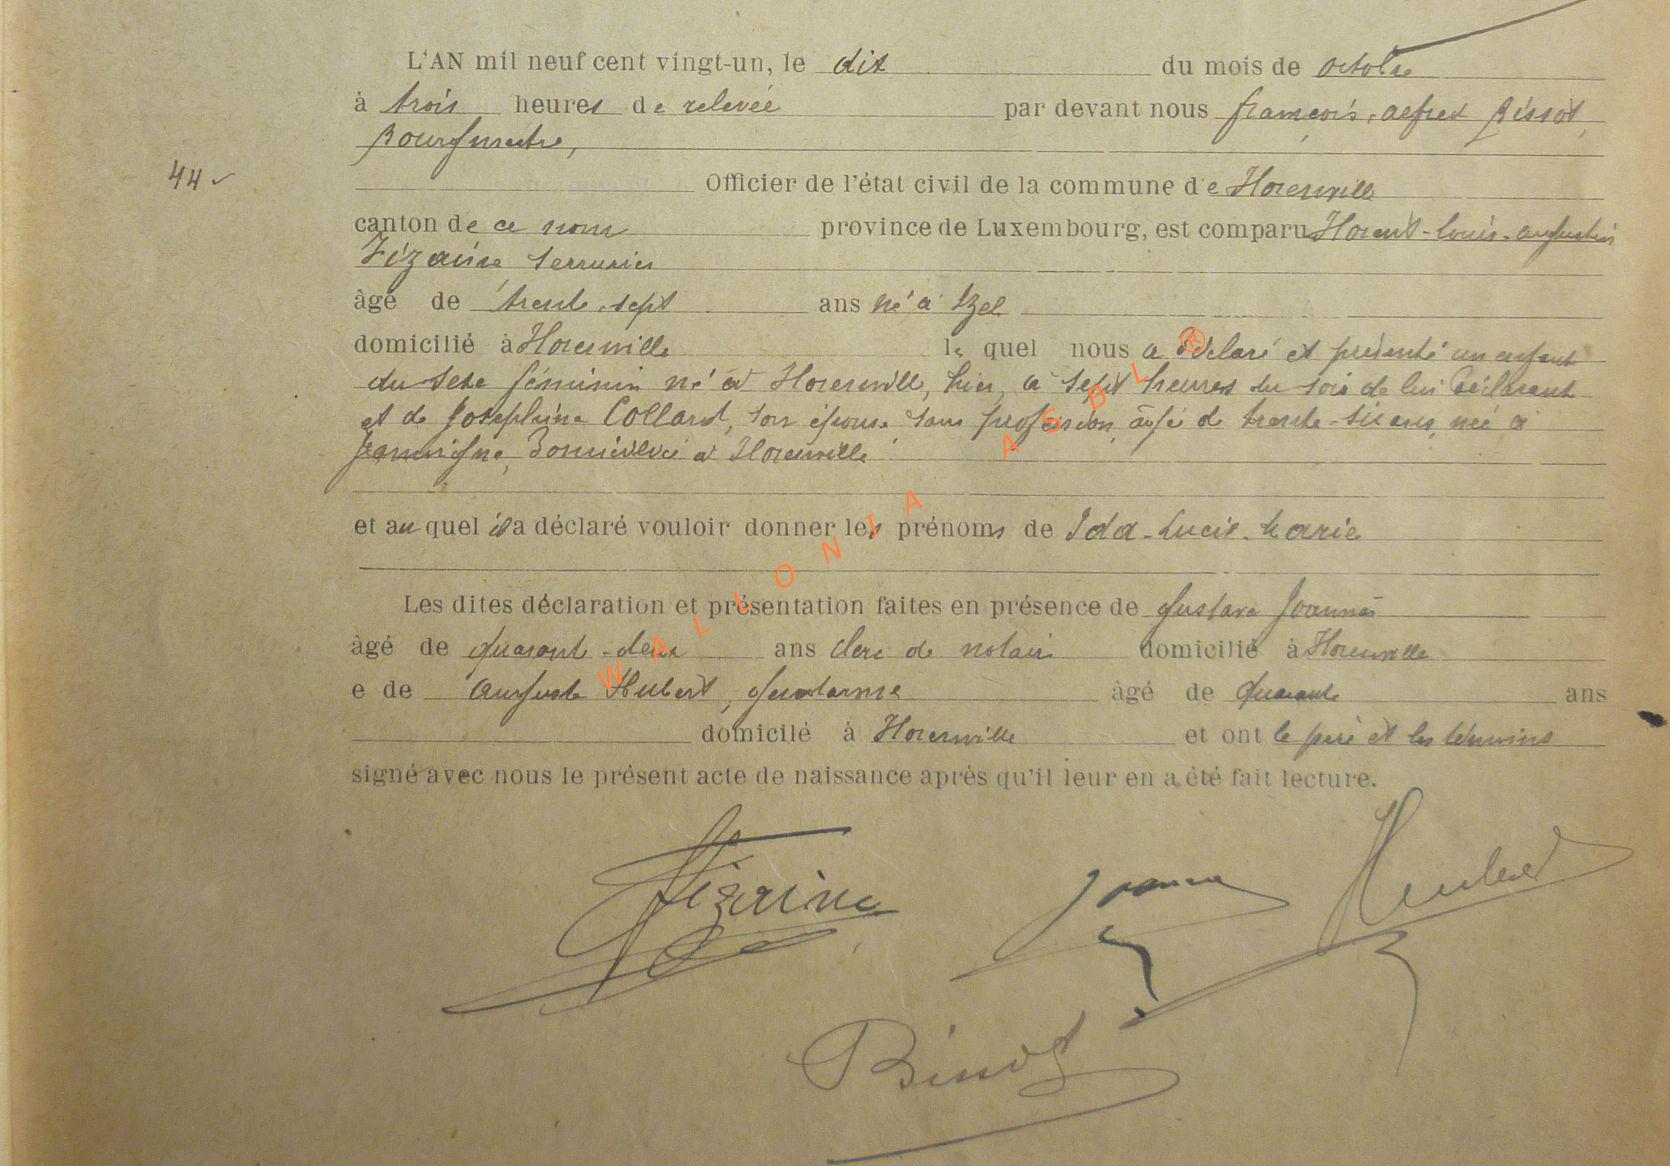 L'AN mil neuf cent vingt-un, le dix du mois de octobre
à trois heures de relevée par devant nous françois-alfred Bissot,
Bourgmestre,
44
Officier de l'état civil de la commune de Florenville
canton de ce nom province de Luxembourg, est comparu Florent-Louis-augustin
Fizaine serrurier
âgé de trente-sept ans né à Izel
domicilié à Florenville lequel nous a déclaré et présenté un enfant
du sexe féminin né à Florenville, hier, à sept heures du soir de lui déclarant
et de Joséphine Collard, son épouse, sans profession, agé de trente-six ans, née à
Jamoigne, Domiciliée à Florenville
et auquel il a déclaré vouloir donner les prénoms de Ida-Lucie-Marie
Les dites déclaration et présentation faites en présence de Gustave Joannes
âgé de quarante-deux ans clerc de notaire domicilié à Florenville
e de auguste Hubert, gendarme âgé de quarante ans
domicilé à Florenville et ont le père et les témoins
signé avec nous le présent acte de naissance après qu'il leur en a été fait lecture.
Fizaine
Hubert
Bissot
WALLONIA ASBL ®